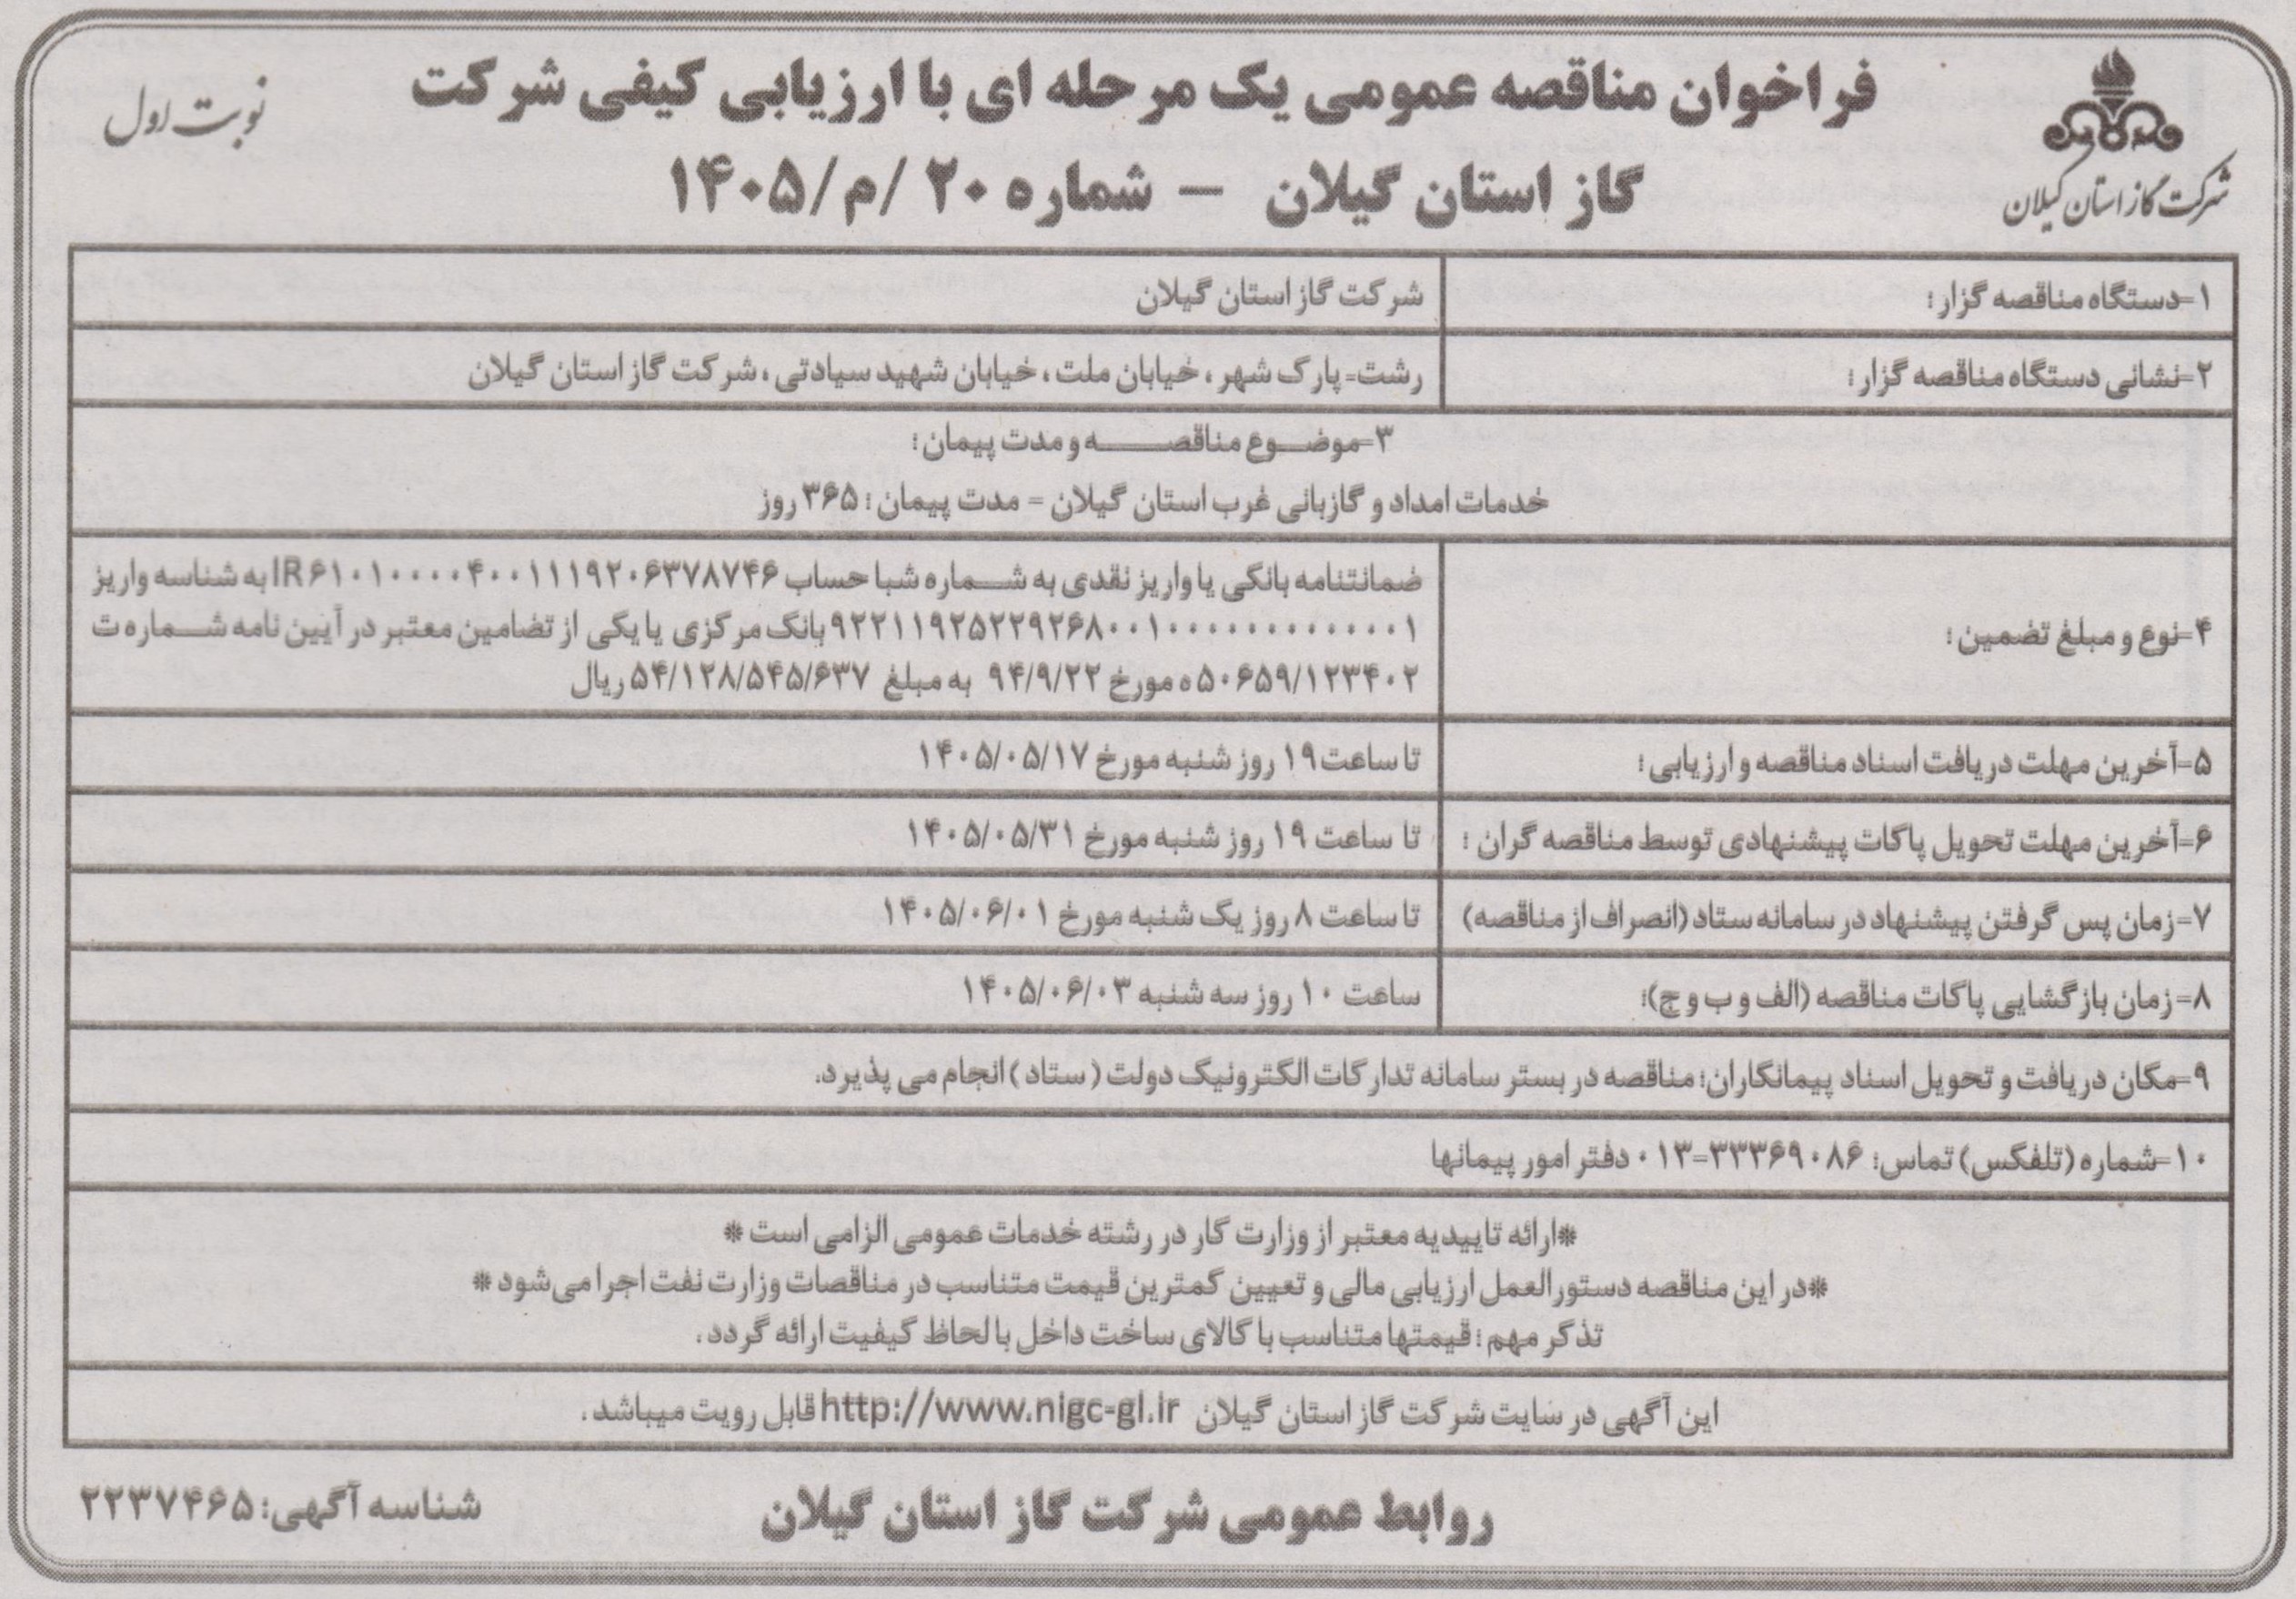 شرکت گاز استان گیلان
نوبت اول
فراخوان مناقصه عمومی یک مرحله ای با ارزیابی کیفی شرکت
گاز استان گیلان – شماره ۲۰ /م/۱۴۰۵
۱-دستگاه مناقصه گزار: شرکت گاز استان گیلان
۲-نشانی دستگاه مناقصه گزار: رشت- پارک شهر ، خیابان ملت ، خیابان شهید سیادتی ، شرکت گاز استان گیلان
۳-موضوع مناقصه و مدت پیمان:
خدمات امداد و گازبانی غرب استان گیلان - مدت پیمان : ۳۶۵ روز
۴-نوع و مبلغ تضمین:
ضمانتنامه بانکی یا واریز نقدی به شماره شبا حساب IR۶۱۰۱۰۰۰۰۴۰۰۱۱۱۹۲۰۶۳۷۸۷۴۶ به شناسه واریز
۹۲۲۱۱۹۲۵۲۲۹۲۶۸۰۰۱۰۰۰۰۰۰۰۰۰۰۰۰۱ بانک مرکزی یا یکی از تضامین معتبر در آیین نامه شماره ت
۵۰۶۵۹/۱۲۳۴۰۲ه مورخ ۹۴/۹/۲۲ به مبلغ ۵۴/۱۲۸/۵۴۵/۶۳۷ ریال
۵-آخرین مهلت دریافت اسناد مناقصه و ارزیابی: تا ساعت ۱۹ روز شنبه مورخ ۱۴۰۵/۰۵/۱۷
۶-آخرین مهلت تحویل پاکات پیشنهادی توسط مناقصه گران : تا ساعت ۱۹ روز شنبه مورخ ۱۴۰۵/۰۵/۳۱
۷-زمان پس گرفتن پیشنهاد در سامانه ستاد (انصراف از مناقصه) تا ساعت ۸ روز یک شنبه مورخ ۱۴۰۵/۰۶/۰۱
۸-زمان بازگشایی پاکات مناقصه (الف و ب و ج): ساعت ۱۰ روز سه شنبه ۱۴۰۵/۰۶/۰۳
۹-مکان دریافت و تحویل اسناد پیمانکاران: مناقصه در بستر سامانه تدارکات الکترونیک دولت ( ستاد ) انجام می پذیرد.
۱۰-شماره (تلفکس) تماس: ۳۳۳۶۹۰۸۶-۰۱۳ دفتر امور پیمانها
*ارائه تاییدیه معتبر از وزارت کار در رشته خدمات عمومی الزامی است *
*در این مناقصه دستورالعمل ارزیابی مالی و تعیین کمترین قیمت متناسب در مناقصات وزارت نفت اجرا می‌شود *
تذکر مهم : قیمتها متناسب با کالای ساخت داخل با لحاظ کیفیت ارائه گردد .
این آگهی در سایت شرکت گاز استان گیلان http://www.nigc-gl.ir قابل رویت میباشد .
روابط عمومی شرکت گاز استان گیلان
شناسه آگهی: ۲۲۳۷۴۶۵